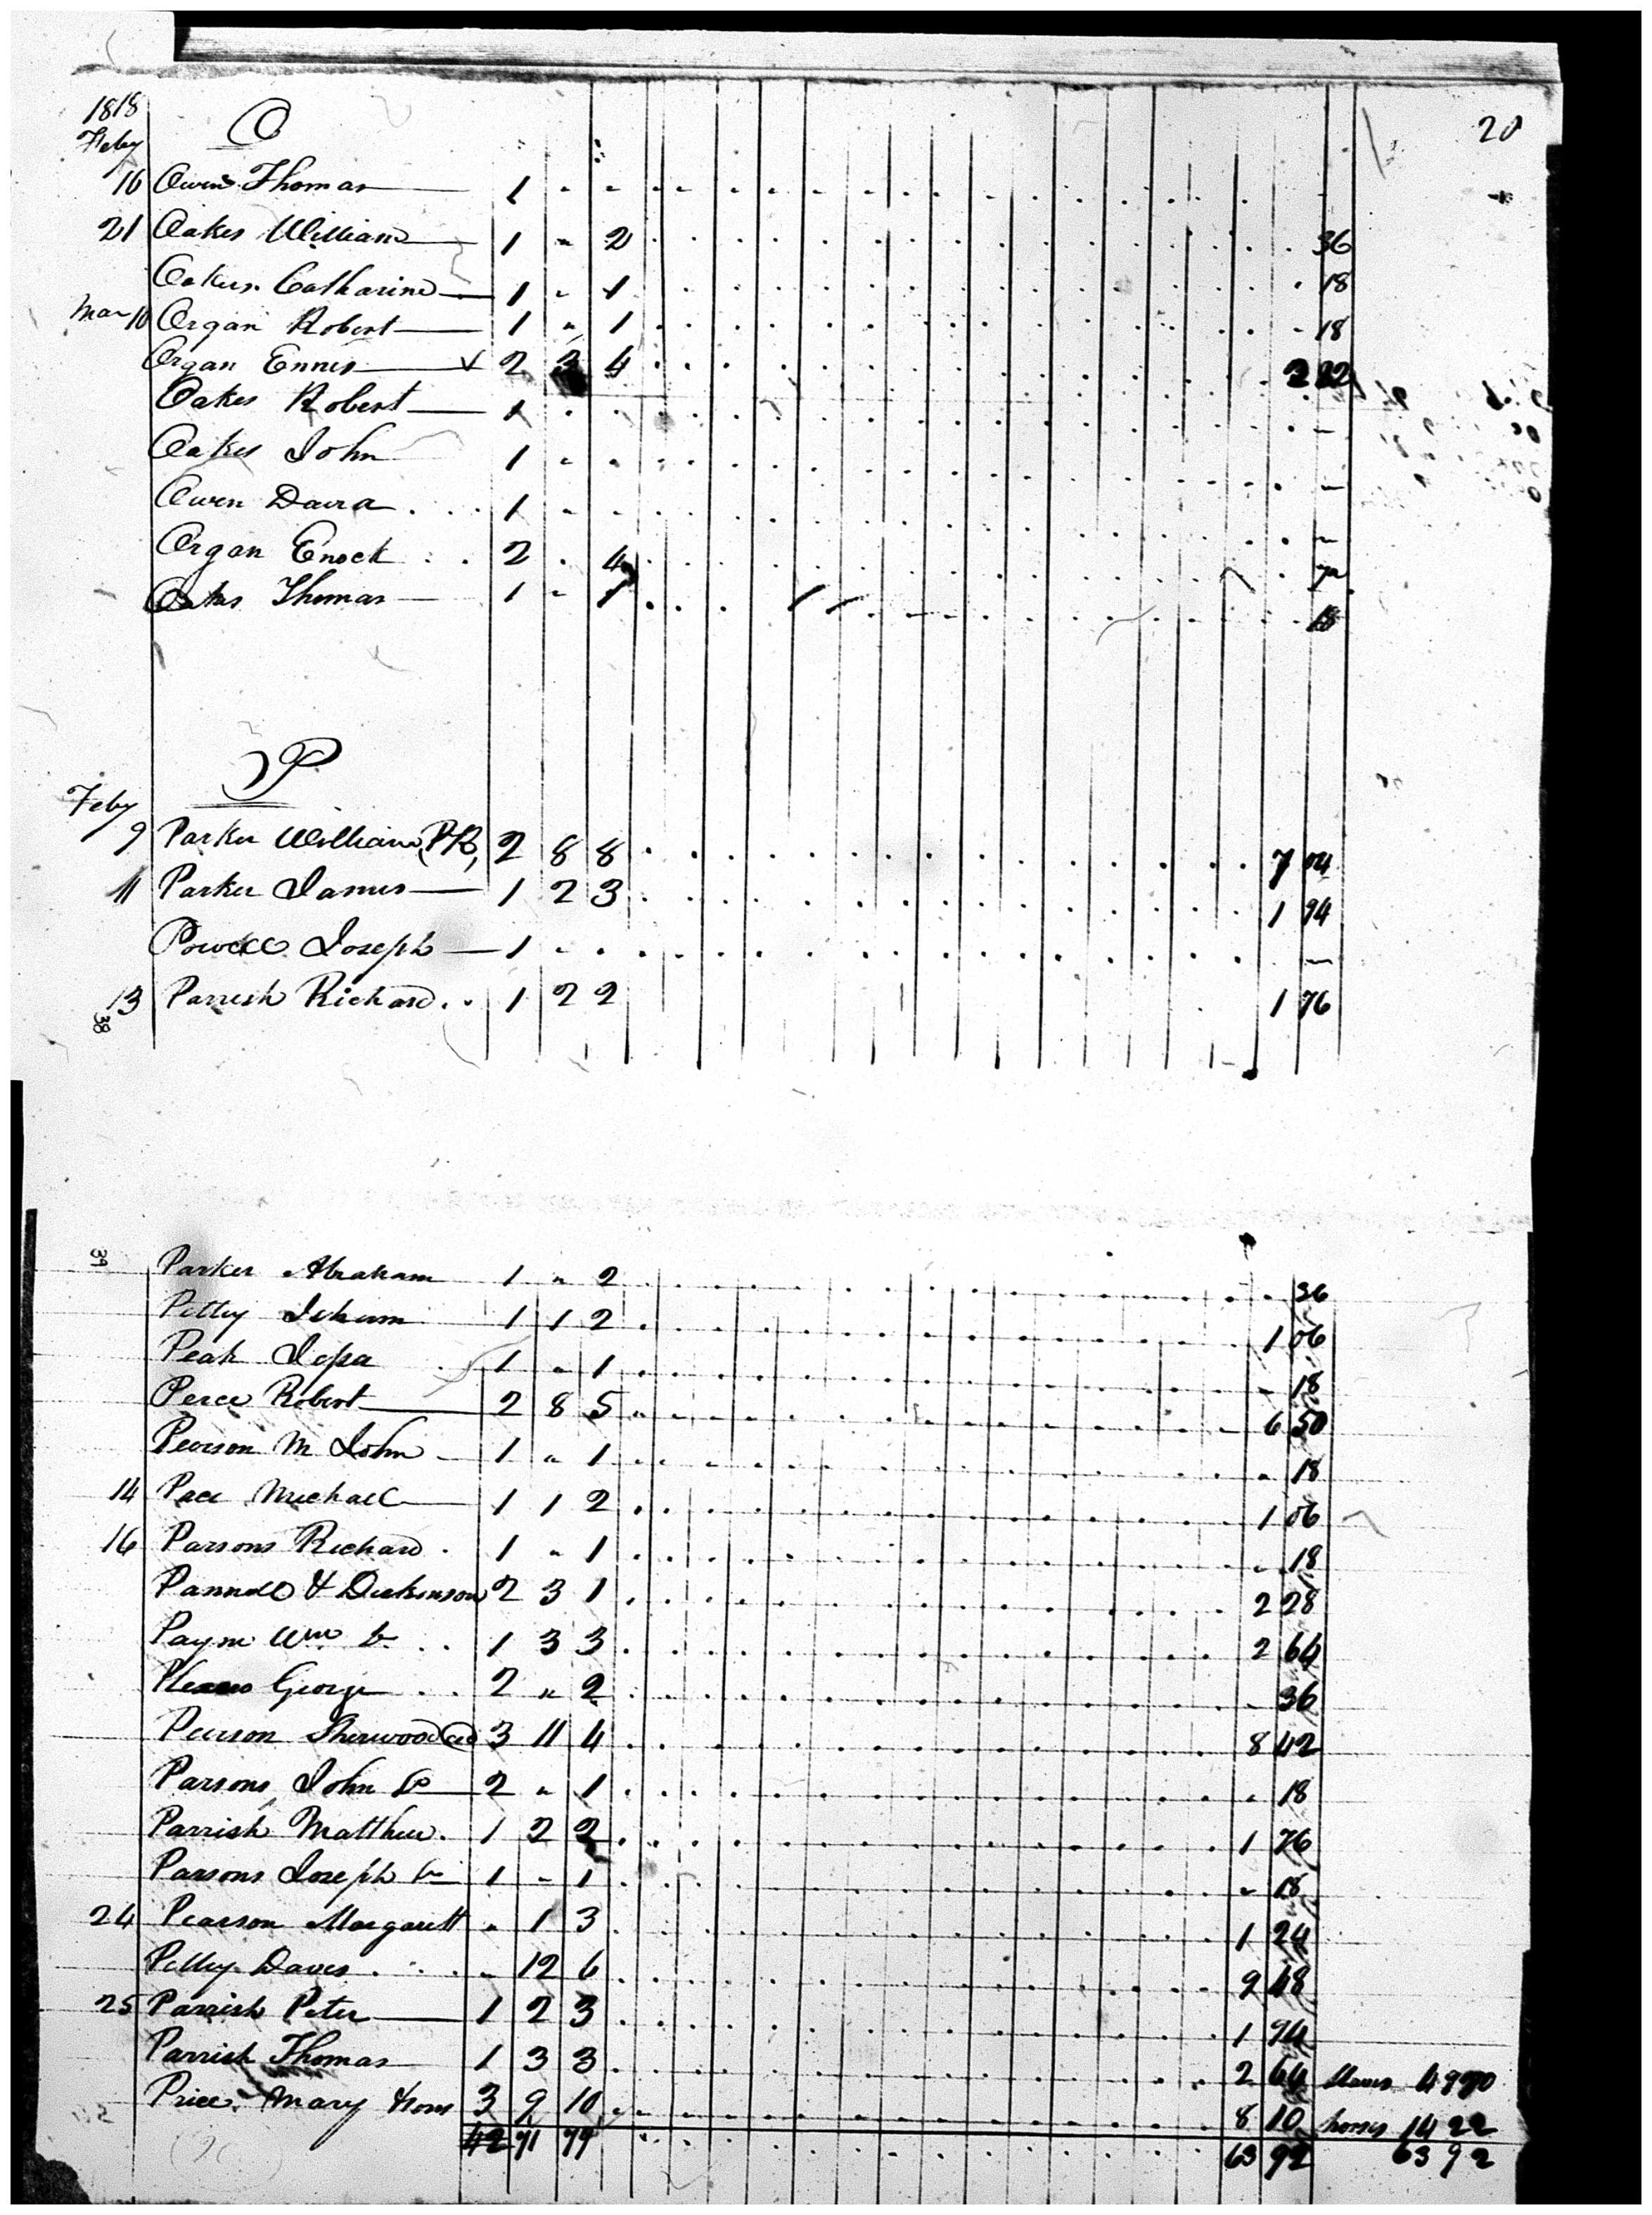 1818
Feby O 20
16 Owen Thomas 1 - -
21 Oakes William 1 - 2 36
Oakes Catharine 1 - 1 18
Mar 10 Organ Robert 1 - 1 18
Organ Ennis 2 3 4 2 82
Oakes Robert 1 -
Oakes John 1 - -
Owen David 1 - -
Organ Enock 2 . 4 72
Oakes Thomas 1 - 1 18
P
Feby
9 Parker William 2 8 8 7 04
11 Parker James 1 2 3 1 94
Powell Joseph 1 - -
13 Parrish Richard 1 2 2 1 76
38
39
Parker Abraham 1 - 2 36
Pettey 1 1 2 1 06
Peak 1 - 1 18
Perce Robert 2 8 5 6 50
Pearson M John 1 - 1 - 18
14 Pace Michael 1 1 2 1 06
16 Parsons Richard 1 - 1 18
Pannill & Dickinson 2 3 1 2 28
Payne Wm 1 3 3 2 64
George 2 - 2 36
Pearson Sherwood 3 11 4 8 42
Parsons John 2 - 1 18
Parrish Matthew 1 2 2 1 76
Parsons Joseph 1 - 1 18
24 Pearson Margarett - 1 3 1 24
Davis - 12 6 9 48
25 Parrish Peter 1 2 3 1 94
Parrish Thomas 1 3 3 2 64 slaves 49 70
Price Mary & sons 3 9 10 8 10 horses 14 22
42 71 79 63 92 63 92